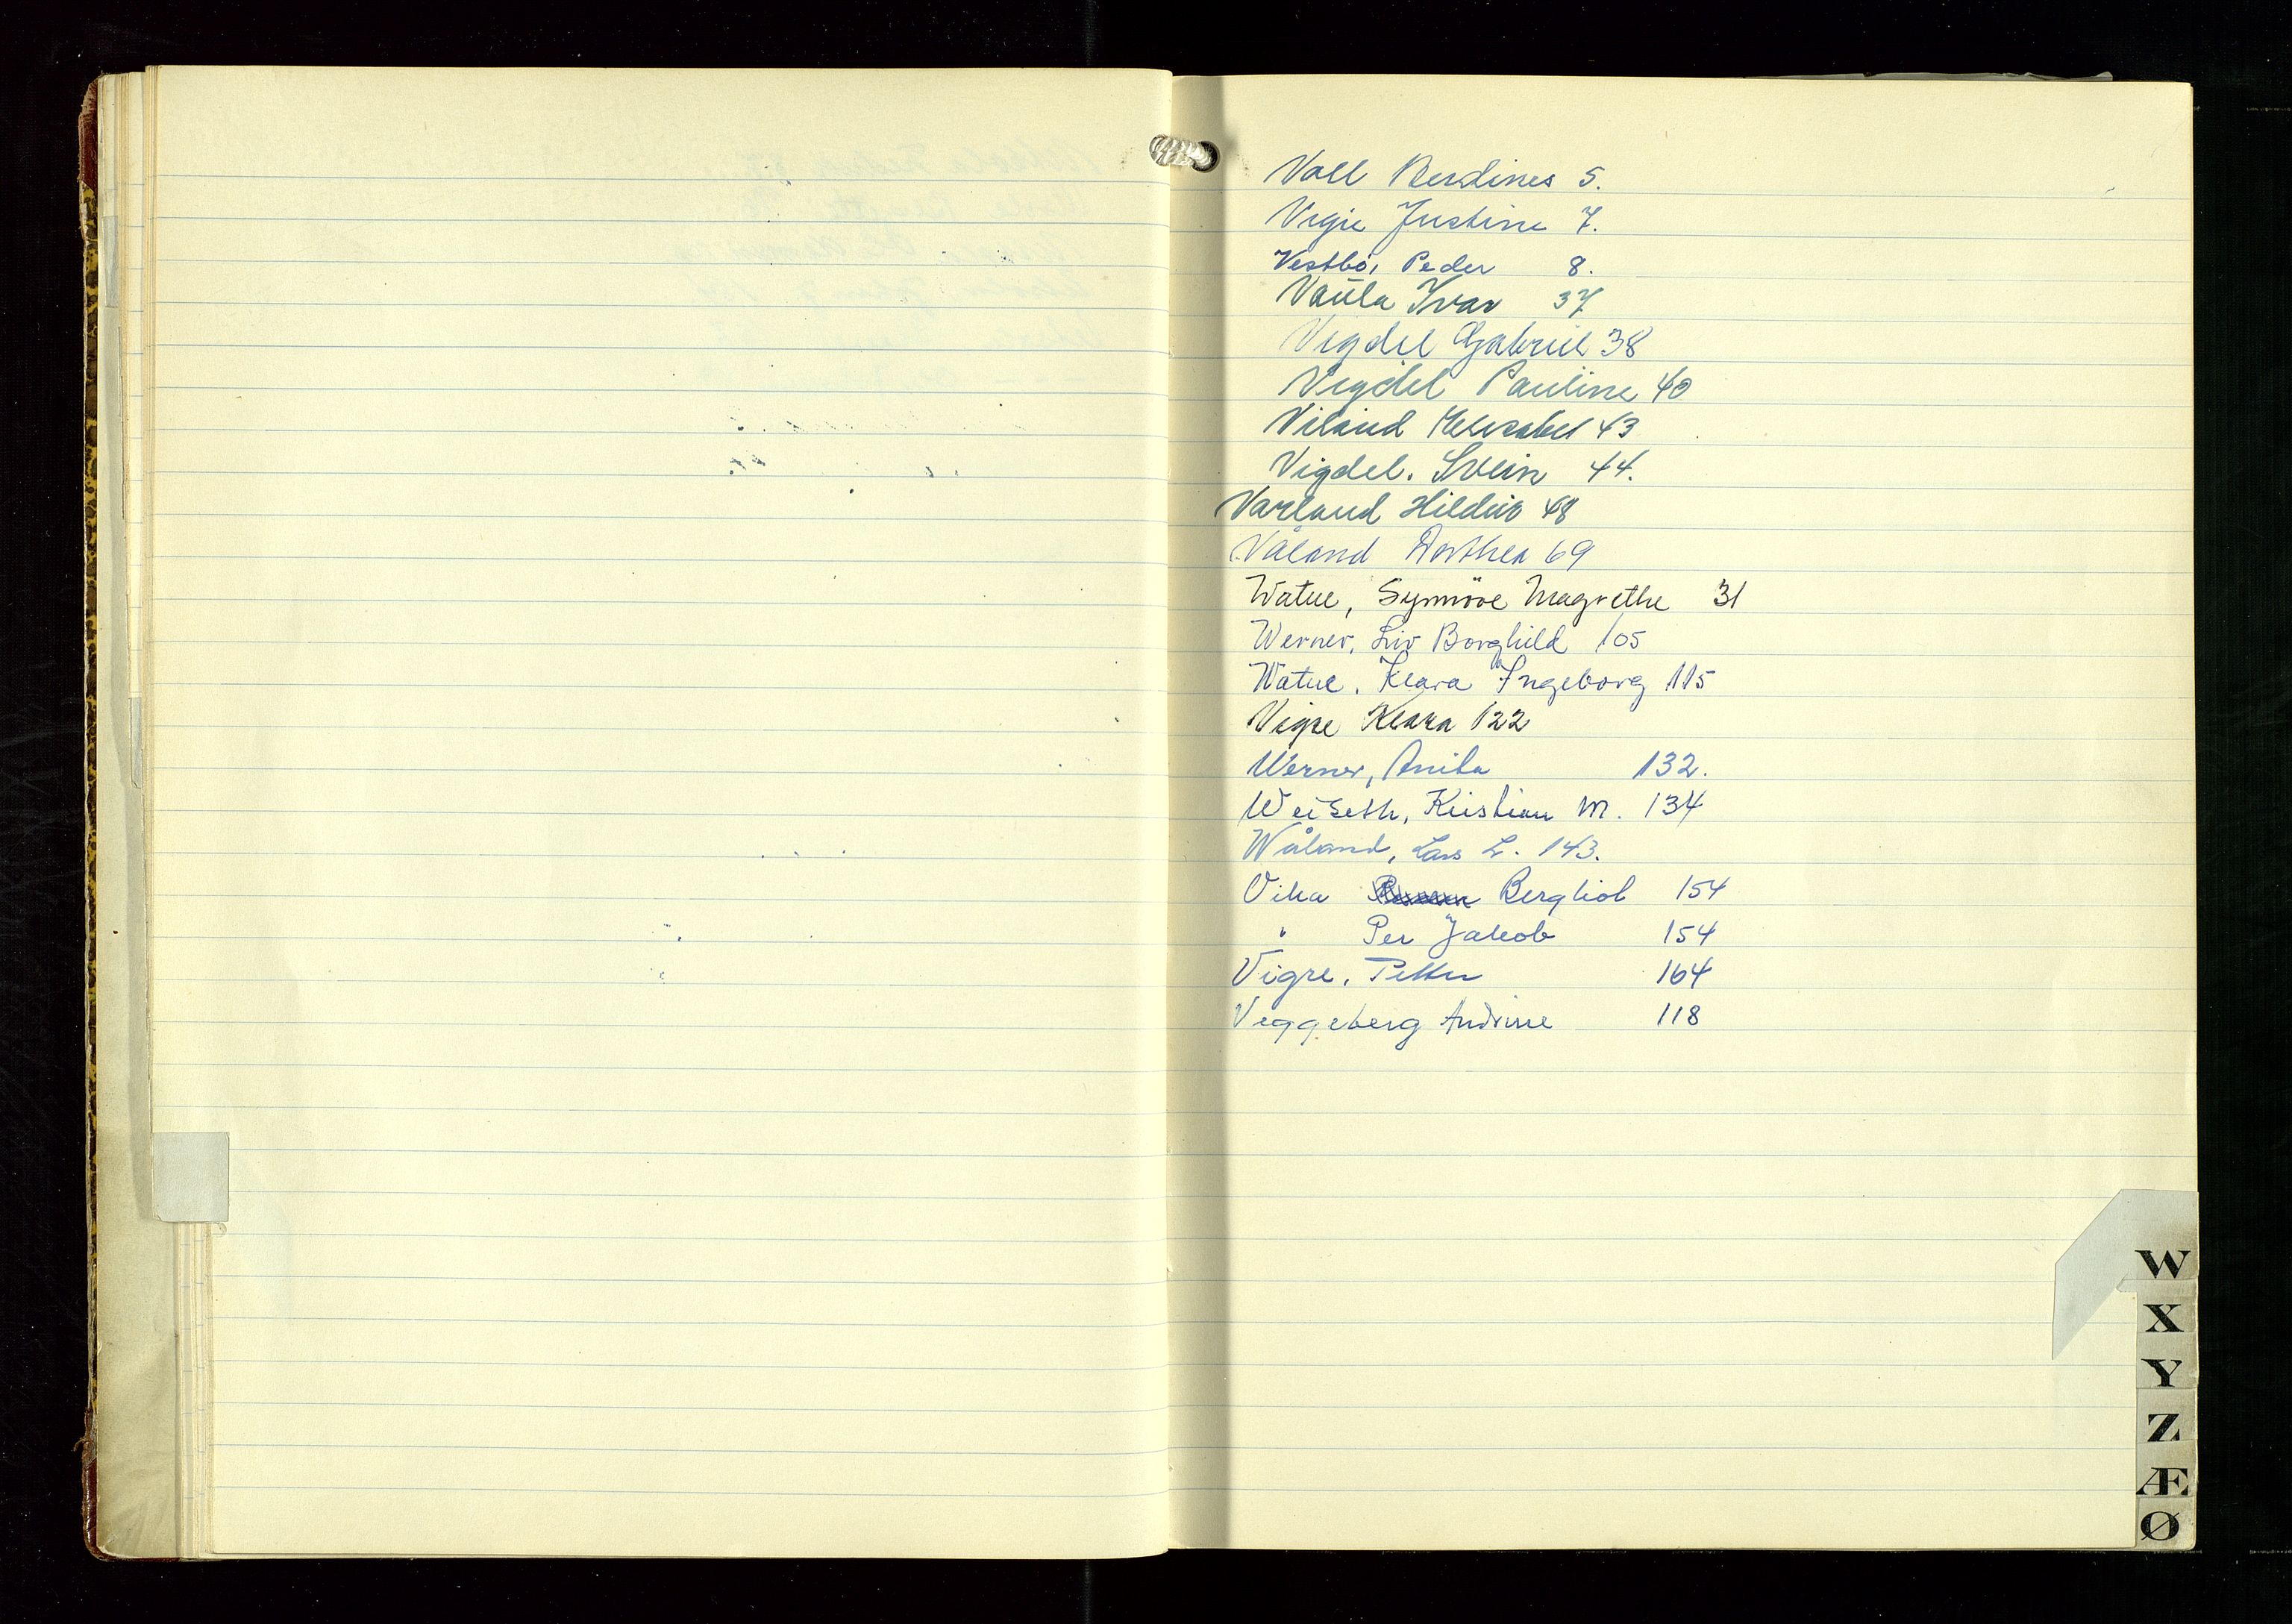 Voll Berdines 5.
Vigre Justine 7.
Vestbö, Peder 8.
Vaula Ivar 37
Vigdel Gabriel 38
Vigdel Pauline 40
Viland Mehsabel 43
Vigdel. Svein 44.
Varland Hildur 48
Våland Dorthea 69
Watne, Synnöve Magrethe 31
Werner, Liv Borghild 105
Watne, Klara Ingeborg 115
Vigre Klara 122
Werner, Anita 132.
Weiseth, Kristian M. 134
Wåland, Lars L. 143.
Vika Bergliot 154
" Per Jakob 154
Vigre, Petter 164
Veggeberg Andrine 118
W
X
Y
Z
Æ
Ø